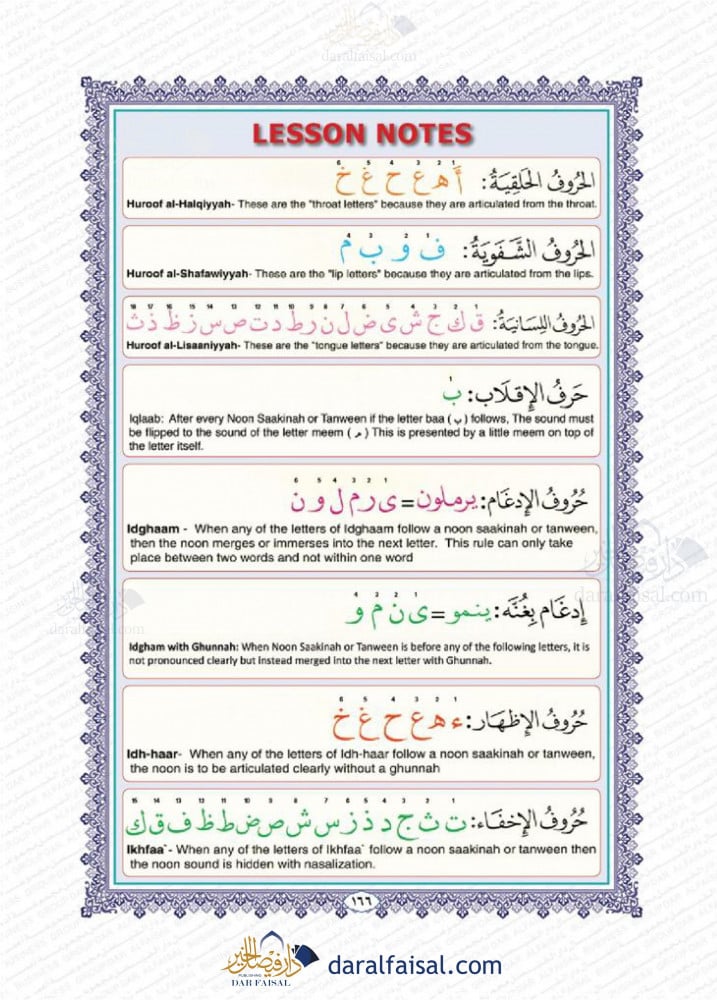 daralfaisal.com
LESSON NOTES
الحُرُوفُ الحَلقِيَةُ: أ ه ع ح غ خ
1 2 3 4 5 6
Huroof al-Halqiyyah- These are the "throat letters" because they are articulated from the throat.
الحُرُوفُ الشَّفَوِيَةُ: ف و ب م
1 2 3 4
Huroof al-Shafawiyyah- These are the "lip letters" because they are articulated from the lips.
الحُرُوفُ اللِسَانِيَةُ: ق ك ج ش ي ض ل ن ر ط د ت ص س ز ظ ذ ث
1 2 3 4 5 6 7 8 9 10 11 12 13 14 15 16 17 18
Huroof al-Lisaaniyyah- These are the "tongue letters" because they are articulated from the tongue.
حَرفُ الإِقلَاب: ب
1
Iqlaab: After every Noon Saakinah or Tanween if the letter baa ( ب ) follows, The sound must
be flipped to the sound of the letter meem ( م ) This is presented by a little meem on top of
the letter itself.
حُرُوفُ الإِدغَام: يرملون = ى ر م ل و ن
1 2 3 4 5 6
Idghaam - When any of the letters of Idghaam follow a noon saakinah or tanween,
then the noon merges or immerses into the next letter. This rule can only take
place between two words and not within one word
إِدغَام بِغُنَّه: ينمو = ى ن م و
1 2 3 4
Idgham with Ghunnah: When Noon Saakinah or Tanween is before any of the following letters, it is
not pronounced clearly but instead merged into the next letter with Ghunnah.
حُرُوفُ الإِظهَار: ء ه ع ح غ خ
1 2 3 4 5 6
Idh-haar- When any of the letters of Idh-haar follow a noon saakinah or tanween,
the noon is to be articulated clearly without a ghunnah
حُرُوفُ الإِخفَاء: ت ث ج د ذ ز س ش ص ض ط ظ ف ق ك
1 2 3 4 5 6 7 8 9 10 11 12 13 14 15
Ikhfaa`- When any of the letters of Ikhfaa` follow a noon saakinah or tanween then
the noon sound is hidden with nasalization.
١٦٦
دار فيصل الخير
PUBLISHING
DAR FAISAL
daralfaisal.com